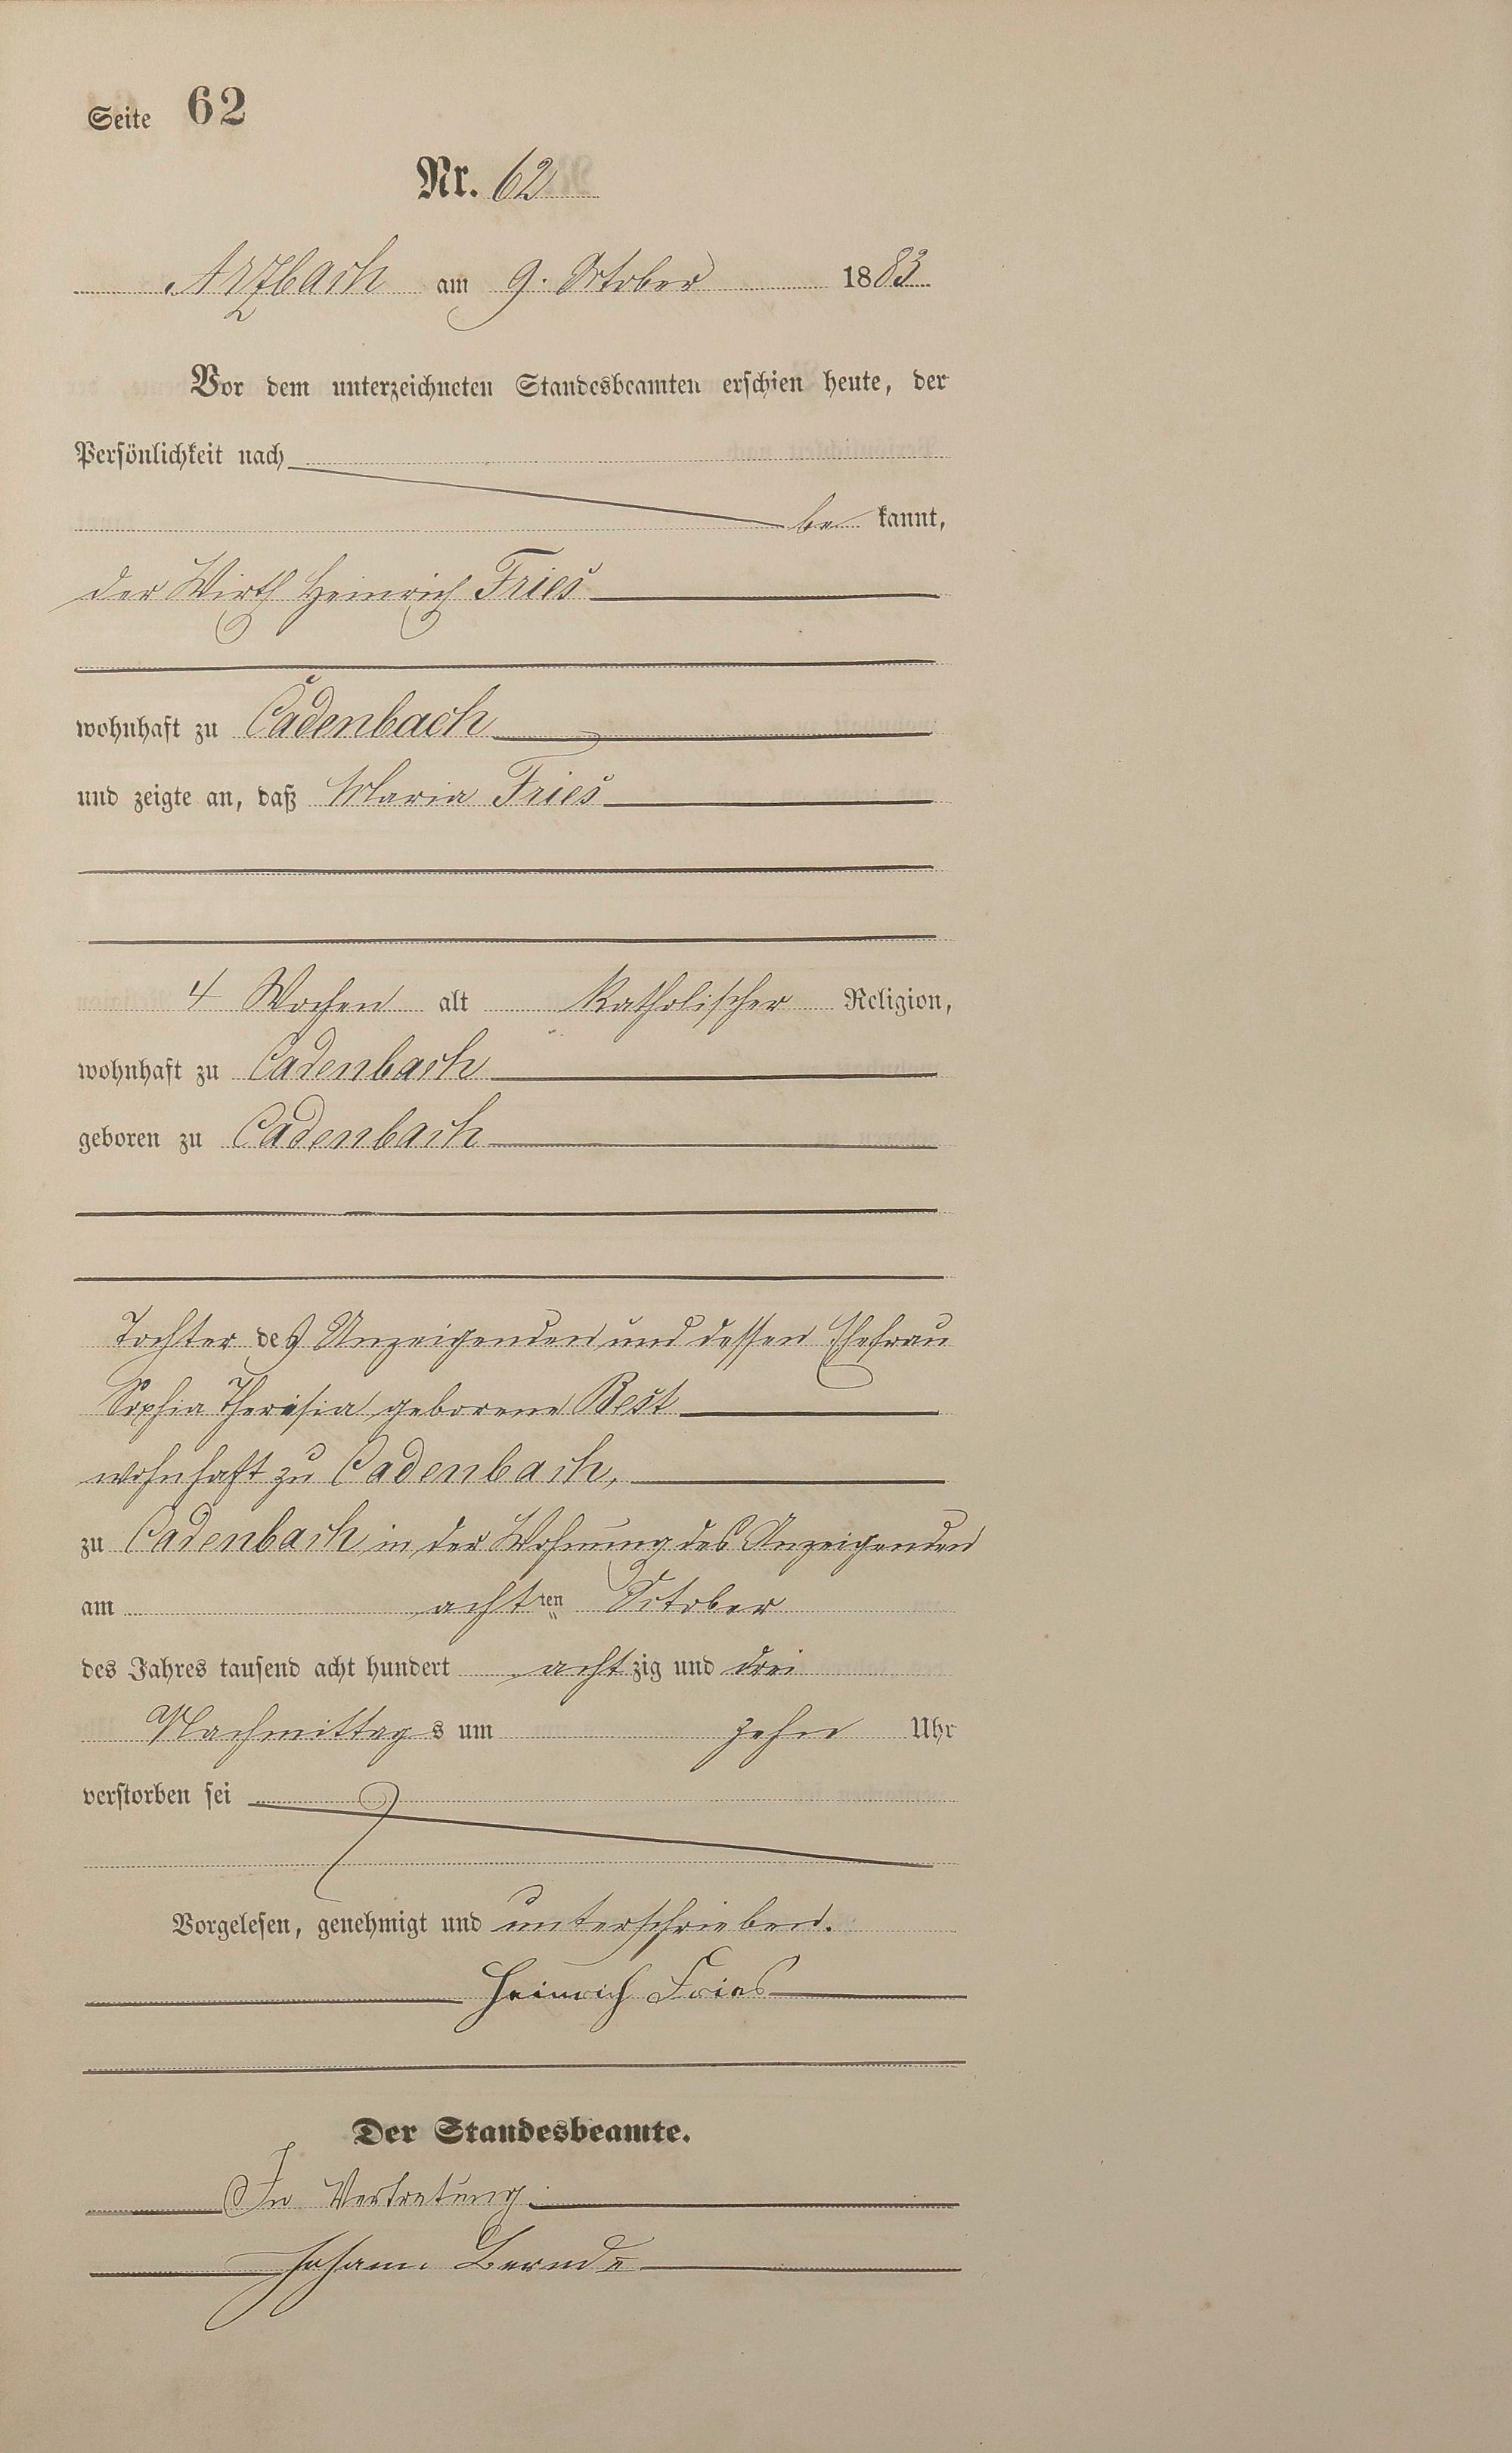 Seite 62
Nr. 62
Arzbach am 9. October 1883
Vor dem unterzeichneten Standesbeamten erschien heute, der
Persönlichkeit nach
be kannt,
der Wirth Heinrich Fries
wohnhaft zu Cadenbach
und zeigte an, daß Maria Fries
4 Wochen alt katholischer Religion,
wohnhaft zu Cadenbach
geboren zu Cadenbach
Tochter des Anzeigenden und dessen Ehefrau
Sophia Theresia geborene Best
wohnhaft zu Cadenbach,
zu Cadenbach in der Wohnung des Anzeigenden
am achtten October
des Jahres tausend acht hundert achtzig und drei
Nachmittags um zehn Uhr
verstorben sei
Vorgelesen, genehmigt und unterschrieben.
Heinrich Fries
Der Standesbeamte.
In Vertretung.
Johann